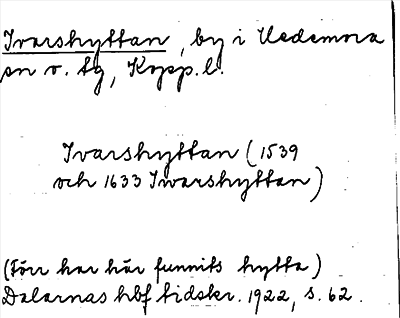 Ivarshyttan, by i Hedemora
sn o. tg, Kopp. l.
Ivarshyttan (1539
och 1633 Iwarshyttan)
(Förr har här funnits hytta)
Dalarnas hbf tidskr. 1922, s. 62.